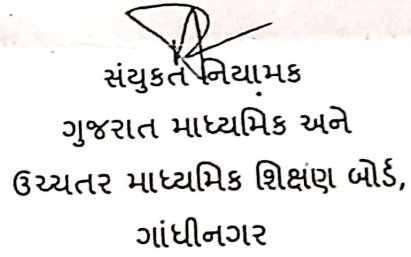 સંયુકત નિયામક
ગુજરાત માધ્યમિક અને
ઉચ્ચતર માધ્યમિક શિક્ષણ બોર્ડ,
ગાંધીનગર